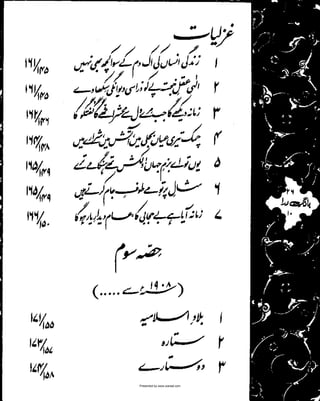 غزلیات
۱ زندگی انساں کی اک دم کے سوا کچھ بھی نہیں ۱۶۱/۱۴۵
۲ الٰہی عقلِ خجستہ پے کو ذرا سی دیوانگی سکھا دے ۱۶۱/۱۴۵
۳ زمانہ دیکھے گا جب مرے دل سے محشر اٹھے گا گفتگو کا
۴ چمک تیری عیاں بجلی میں آتش میں شرارے میں
۵ یوں تو اے بزمِ جہاں دلکش تھے ہنگامے ترے ۱۶۵/۱۴۹
۶ مثالِ پرتوِ مے طوفِ جام کرتے ہیں ۱۶۵/۱۴۹
۷ زمانہ آیا ہے بے حجابی کا عام دیدارِ یار ہوگا ۱۶۶/۱۵۰
حصہ سوم
(۱۹۰۸ سے .....)
۱ بلادِ اسلامیہ ۱۷۱/۱۵۵
۲ ستارہ ۱۷۳/۱۵۷
۳ دو ستارے ۱۷۴/۱۵۸
بانگِ درا
۱۰
Presented by www.iqbalat.com